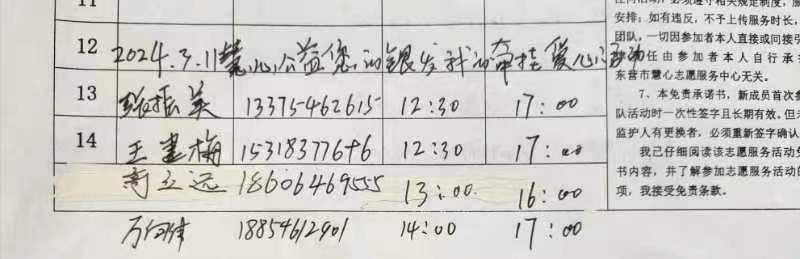 12
2024.3.11慧心公益您的银发我的牵挂爱心活动
13 张振英 13375462615 12:30 17:00
14 王書梅 15318377676 12:30 17:00
高立远 18606469555 13:00 16:00
万 18854612901 14:00 17:00
安排；如有违反，不予上传服务时长，
团队，一切因参加者本人直接或间接引
任由参加者本人自行承担
东营市慧心志愿服务中心无关。
7、本免责承诺书，新成员首次参
队活动时一次性签字且长期有效，但
监护人有更换者，必须重新签字确认
我已仔细阅读该志愿服务活动免
书内容，并了解参加志愿服务活动的
项，我接受免责条款。